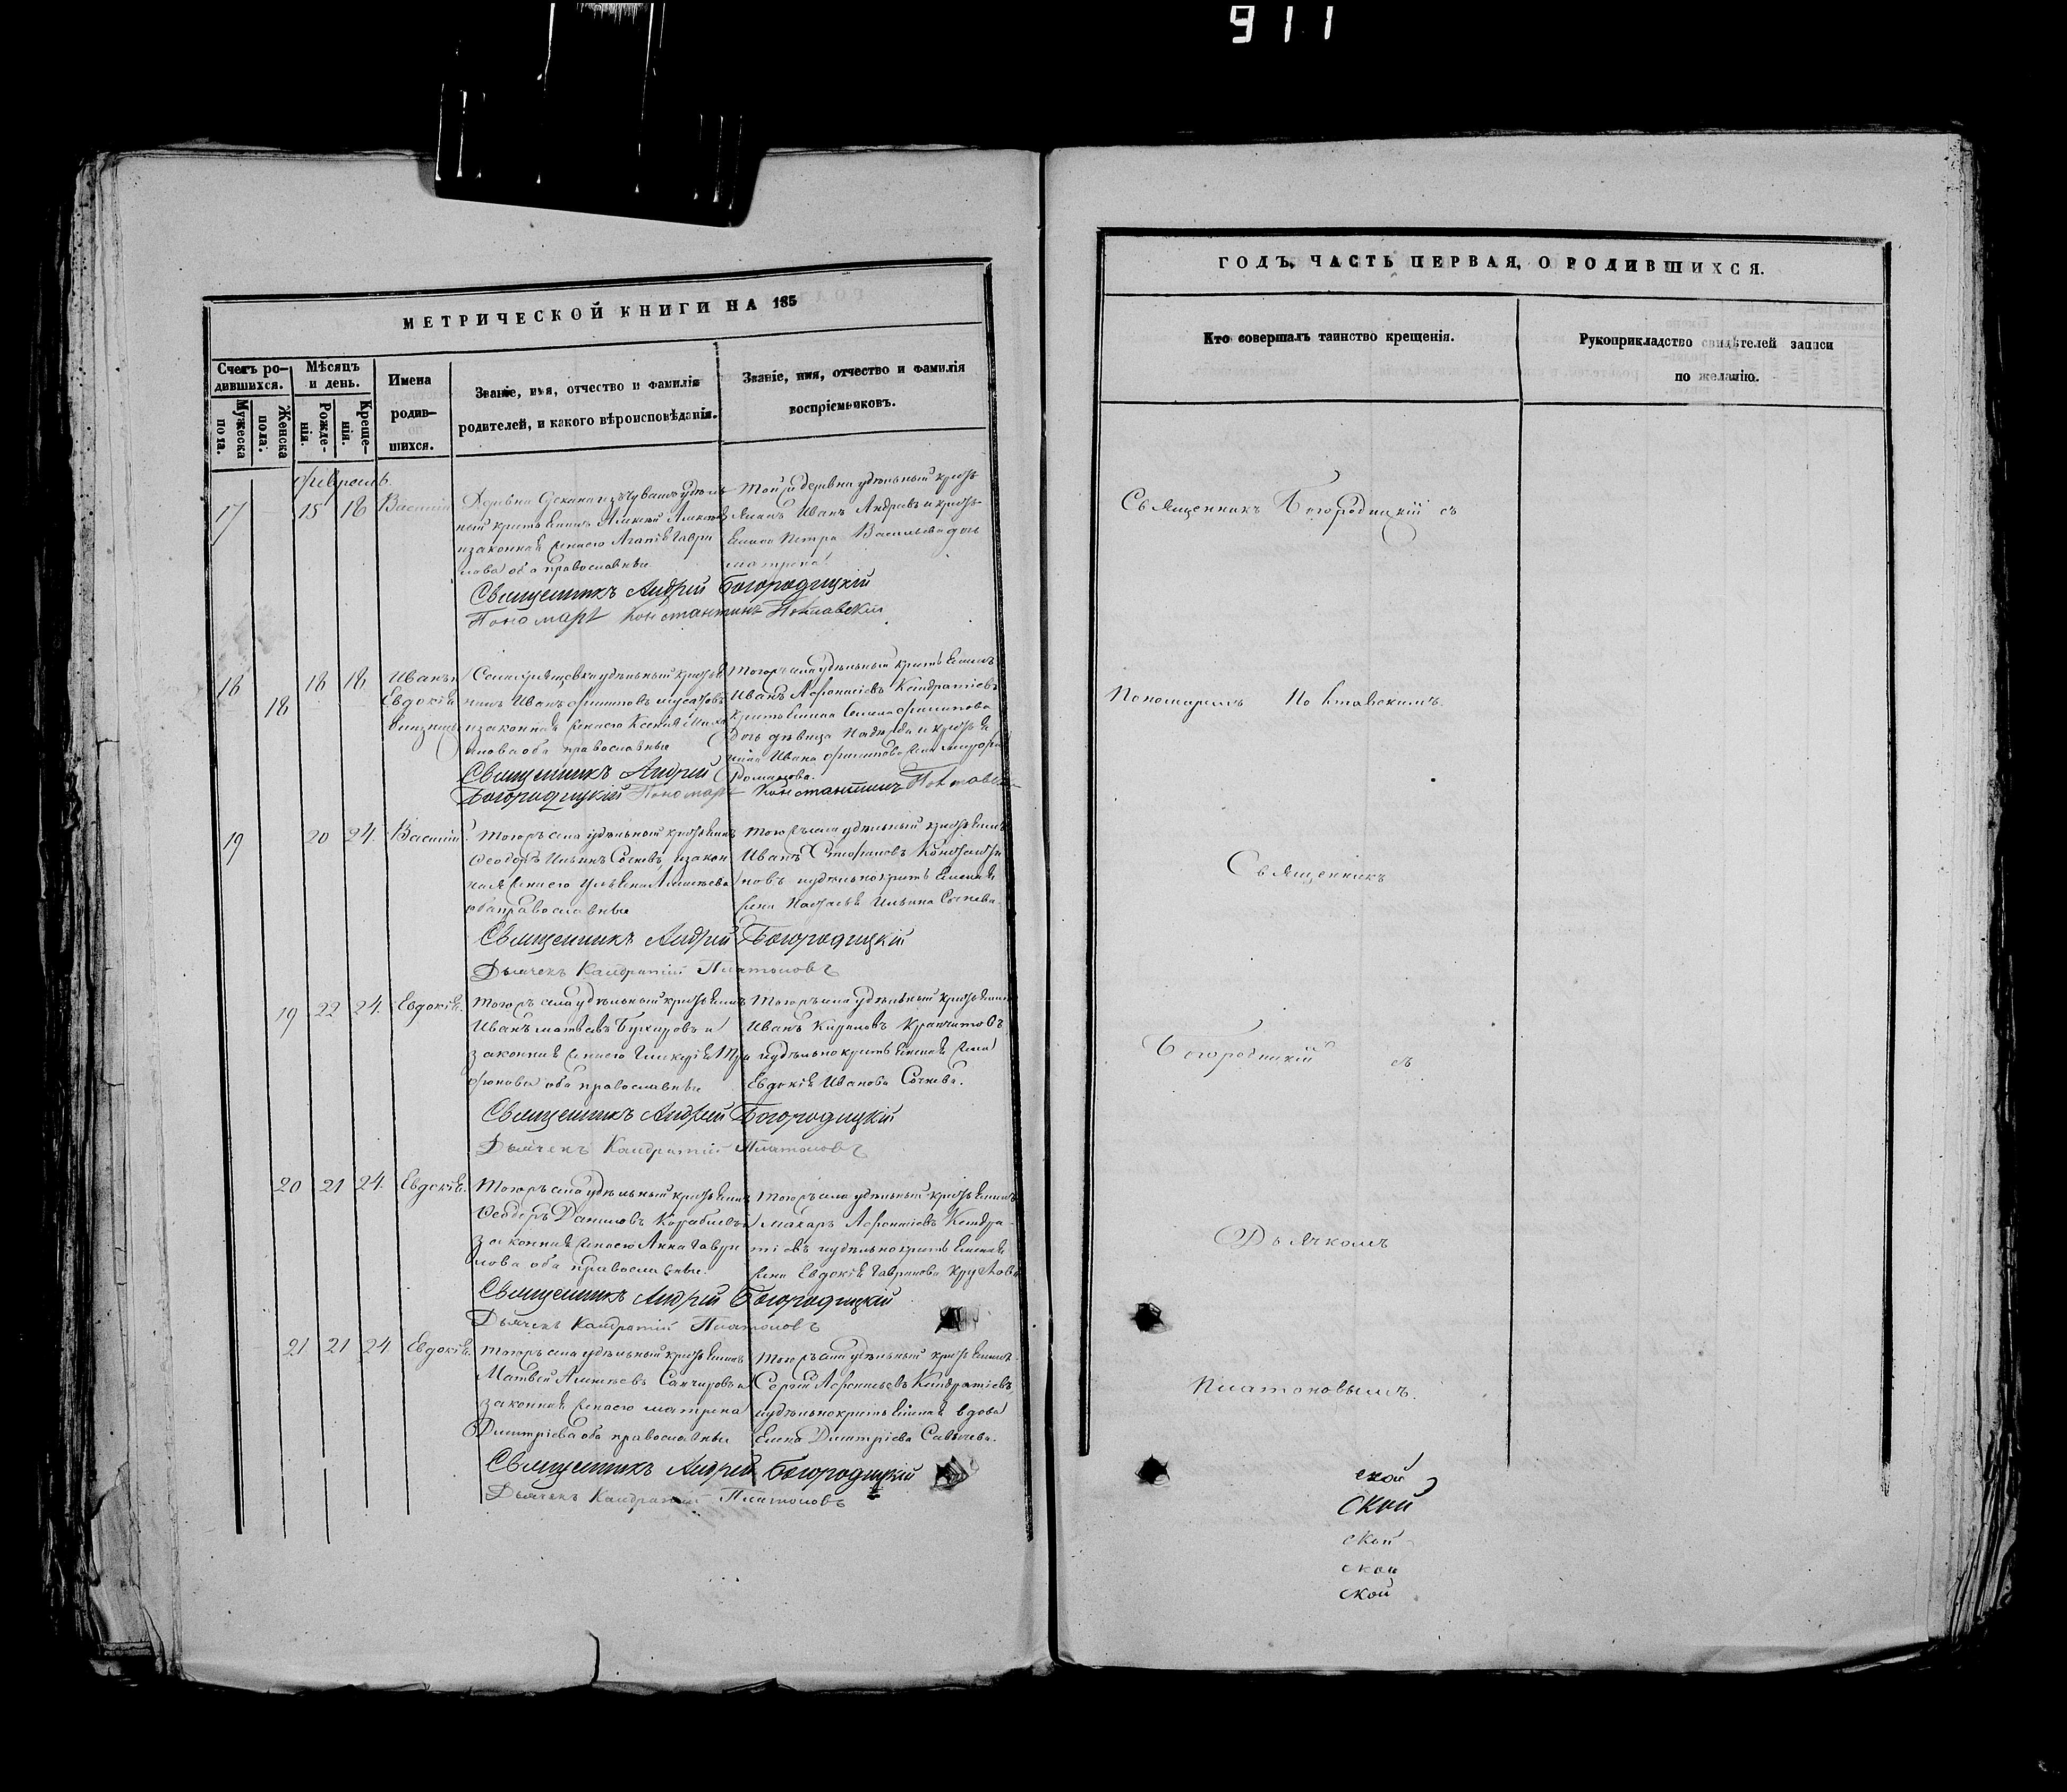 911
МЕТРИЧЕСКОЙ КНИГИ НА 185
Счетъ ро-
дившихся.
Мужеска
пола.
Женска
пола.
Мѣсяцъ
и день.
Рожде-
нія.
Креще-
нія.
Имена
родив-
шихся.
Званіе, имя, отчество и фамилія
родителей, и какого вѣроисповѣданія.
Званіе, имя, отчество и фамилія
воспріемниковъ.
февраль.
17 15 18 Василій
Деревни удѣль
ный крестьянинъ
и законная жена его Агапія Гаври
лова оба православные
Той же деревни удѣльный кресть
янинъ Иванъ Андреевъ и кресть
янина Петра Васильева дочь
матрена
Священникъ Андрей Богородицкій
Пономарь Константинъ Полтавскій
18 18 18 18 Иванъ и
Евдокія
близнецы
Села удѣльный крестья
нинъ Иванъ Филиповъ
и законная жена его Ксенія
оба православные
Тогожъ села удѣльный крестьянинъ
Иванъ Афонасіевъ Кондратіевъ
крестьянина Семена Филипова
дочь девица Надежда и крестья
нина Ивана Филипова жена
Романова.
Священникъ Андрей
Богородицкій Пономарь Константинъ Полтавскій
19 20 24. Василій
Тогожъ села удѣльный крестьянинъ
Феодоръ Ильинъ Сочневъ, и закон
ная жена его Ульяна Алексѣева
оба православные
Тогожъ села удѣльный крестьянинъ
Иванъ Стефановъ Константи
новъ и удѣльнокрестьянская
жена Настасья Ильина Сочнева.
Священникъ Андрей Богородицкій
Дьячекъ Кандратій Платоновъ
19 22 24. Евдокія.
Тогожъ села удѣльный крестьянинъ
Иванъ матвѣевъ и
законная жена его Гликерія Три
фонова оба православные
Тогожъ села удѣльный крестьянинъ
Иванъ Кириловъ
и удѣльнокрестьянская жена
Евдокія Иванова Сочнева.
Священникъ Андрей Богородицкій
Дьячекъ Кандратій Платоновъ
20 21 24. Евдокія.
Тогожъ села удѣльный крестьянинъ
Феодоръ Даниловъ и
законная жена его Анна Гаври
лова оба православные.
Тогожъ села удѣльный крестьянинъ
Макаръ Афонасіевъ Кондра-
тіевъ и удѣльнокрестьянская
жена Евдокія Гаврилова
Священникъ Андрей Богородицкій
Дьячекъ Кандратій Платоновъ
21 21 24 Евдокія.
Тогожъ села удѣльный крестьянинъ
Матвей Алексѣевъ и
законная жена его матрена
Дмитріева оба православные
Тогожъ села удѣльный крестьянинъ
Сергей Афонасьевъ Кондратіевъ
и удѣльнокрестьянская вдова
Елена Дмитріева
Священникъ Андрей Богородицкій
Дьячекъ Кандратій Платоновъ
ГОДЪ, ЧАСТЬ ПЕРВАЯ, О РОДИВШИХСЯ.
Кто совершалъ таинство крещенія.
Рукоприкладство свидѣтелей записи
по желанію.
Священникъ Богородицкій съ
Пономаремъ Полтавскимъ.
Священникъ
Богородицкій съ
Дьячкомъ
Платоновымъ.
ской
ской
ской
ской
ской